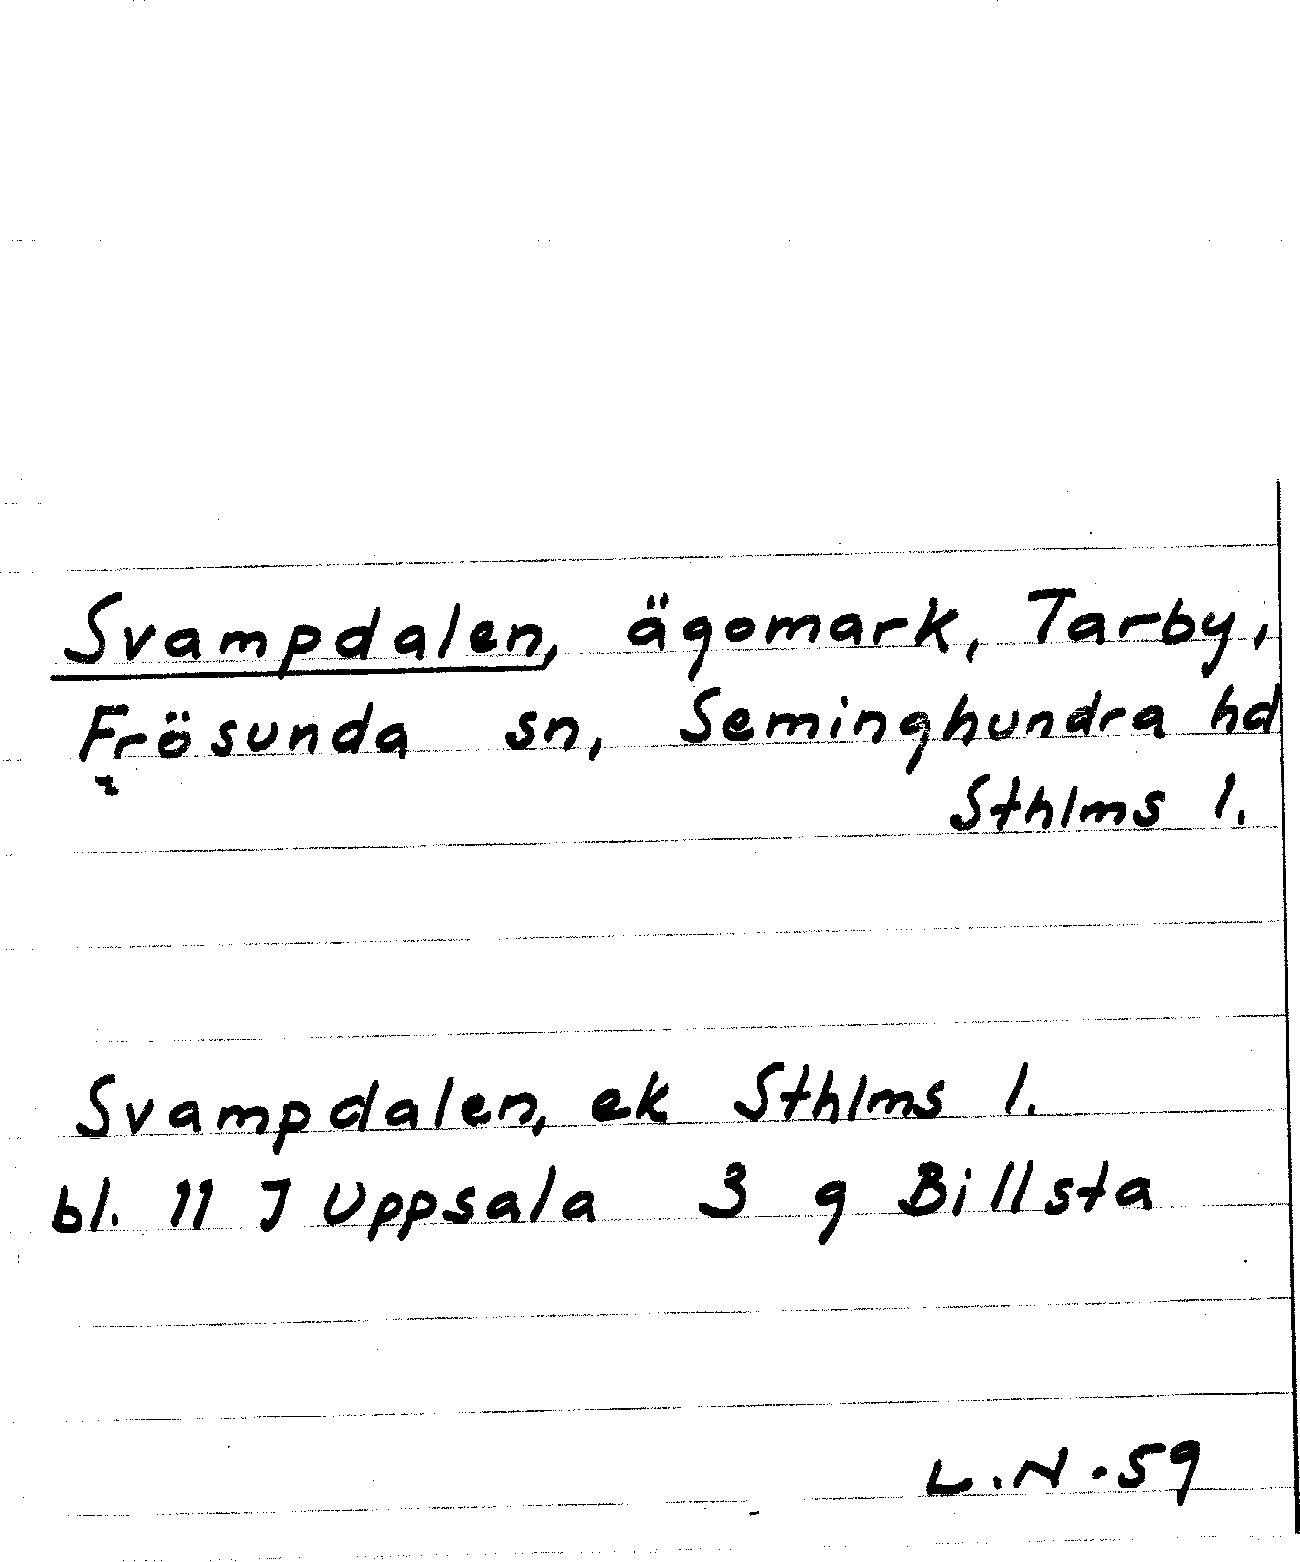 Svampdalen, ägomark, Tarby,
Frösunda sn, Seminghundra hd
Sthlms l.
Svampdalen, ek Sthlms l.
bl. 11 J Uppsala 3 g Billsta
L.N.59